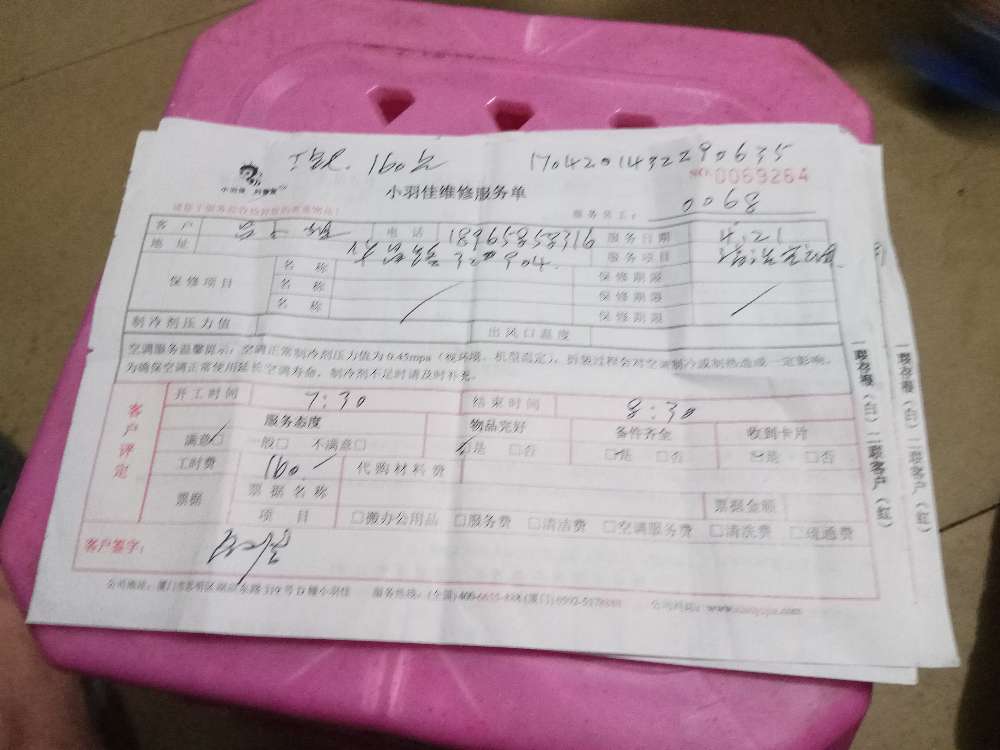 160元 170420143229 0635
小羽佳 科普家
小羽佳维修服务单
No: 0069264
服务员工: 0068
客户 电话 18965858316 服务日期 4.21
地址 服务项目
保修项目 名称 保修期限
名称 保修期限
名称 保修期限
制冷剂压力值 出风口温度
空调服务温馨提示:空调正常制冷剂压力值为0.45mpa(视环境、机型而定),拆装过程会对空调制冷或制热造成一定影响,
为确保空调正常使用延长空调寿命,制冷剂不足时请及时补充。
客户评定
开工时间 7:30 结束时间 8:30
服务态度 物品完好 备件齐全 收到卡片
满意□ 一般□ 不满意□ □是 □否 □是 □否 □是 □否
工时费 160. 代购材料费
票据 票据名称 票据金额
项目 □搬办公用品 □服务费 □清洁费 □空调服务费 □清洗费 □疏通费
客户签字:
公司地址:厦门市思明区湖滨东路319号D幢小羽佳 服务热线:(全国)400-6655-888 (厦门)0592-5178888 公司网址:www.xiaoyujia.com